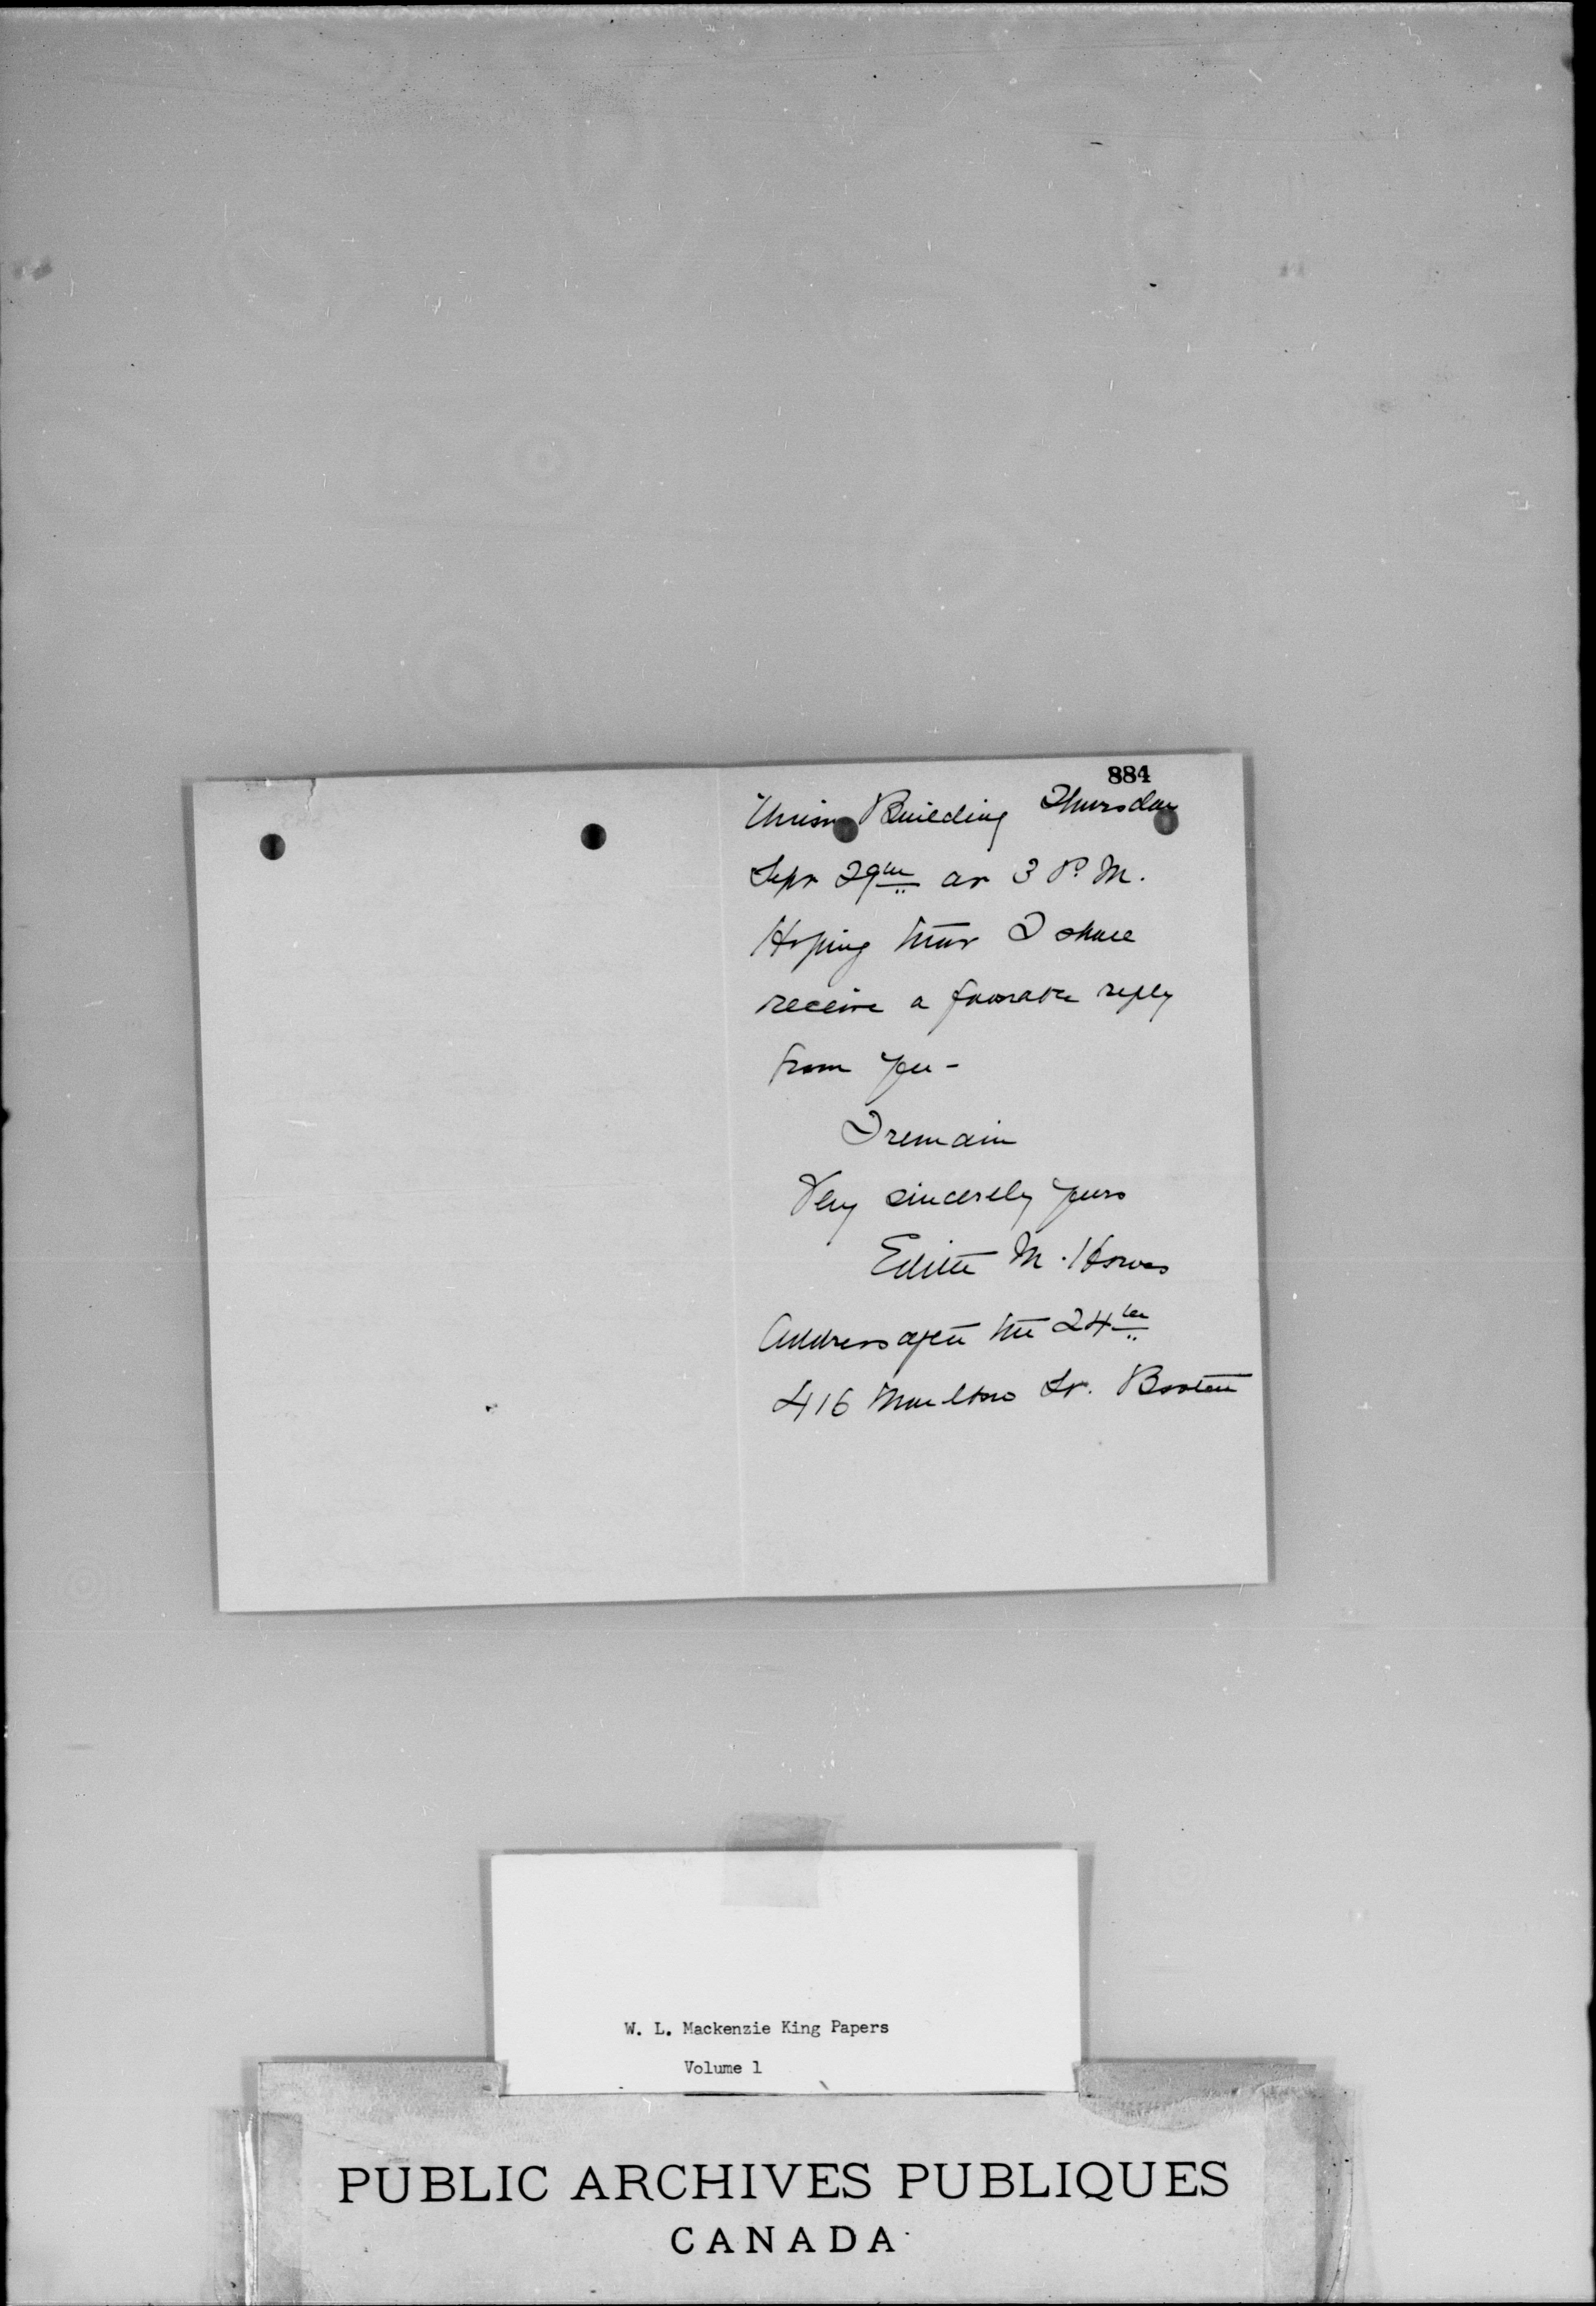 884
Union Building Thursday
Sept 29th at 3 P.M.
Hoping that I shall
receive a favorable reply
from you -
I remain
Very sincerely yours
Edith M. Howes
Address after the 24th
416 Marlboro St. Boston
W. L. Mackenzie King Papers
Volume 1
PUBLIC ARCHIVES PUBLIQUES
CANADA